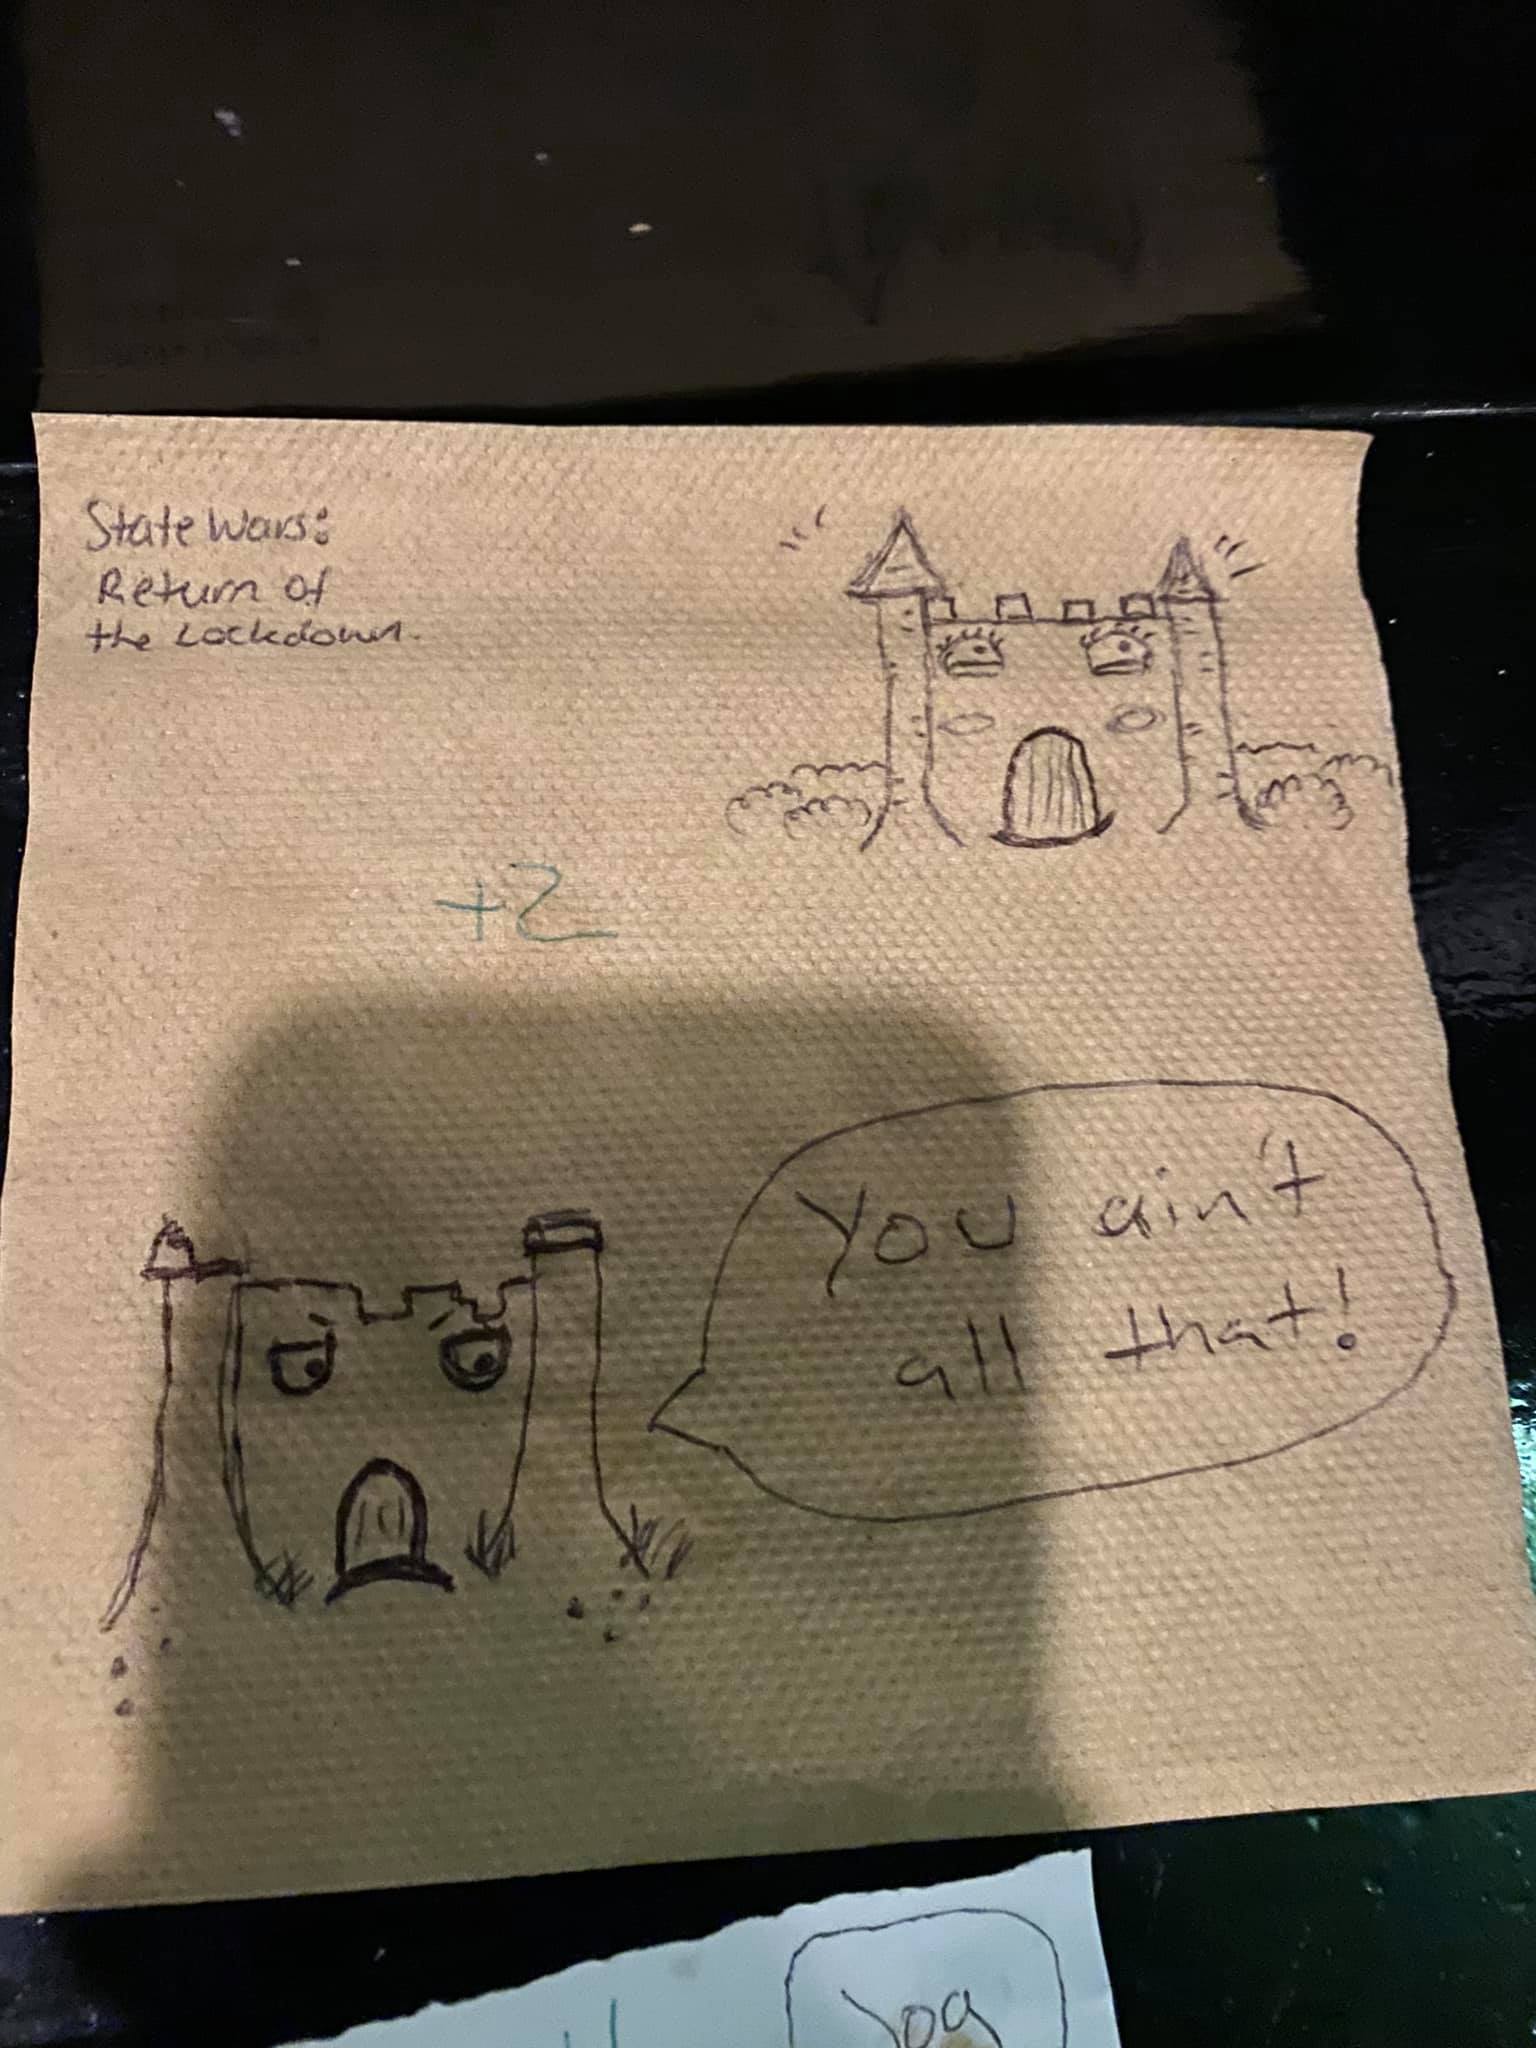 State Wars:
Return of
the Lockdown.
+2
You ain't
all that!